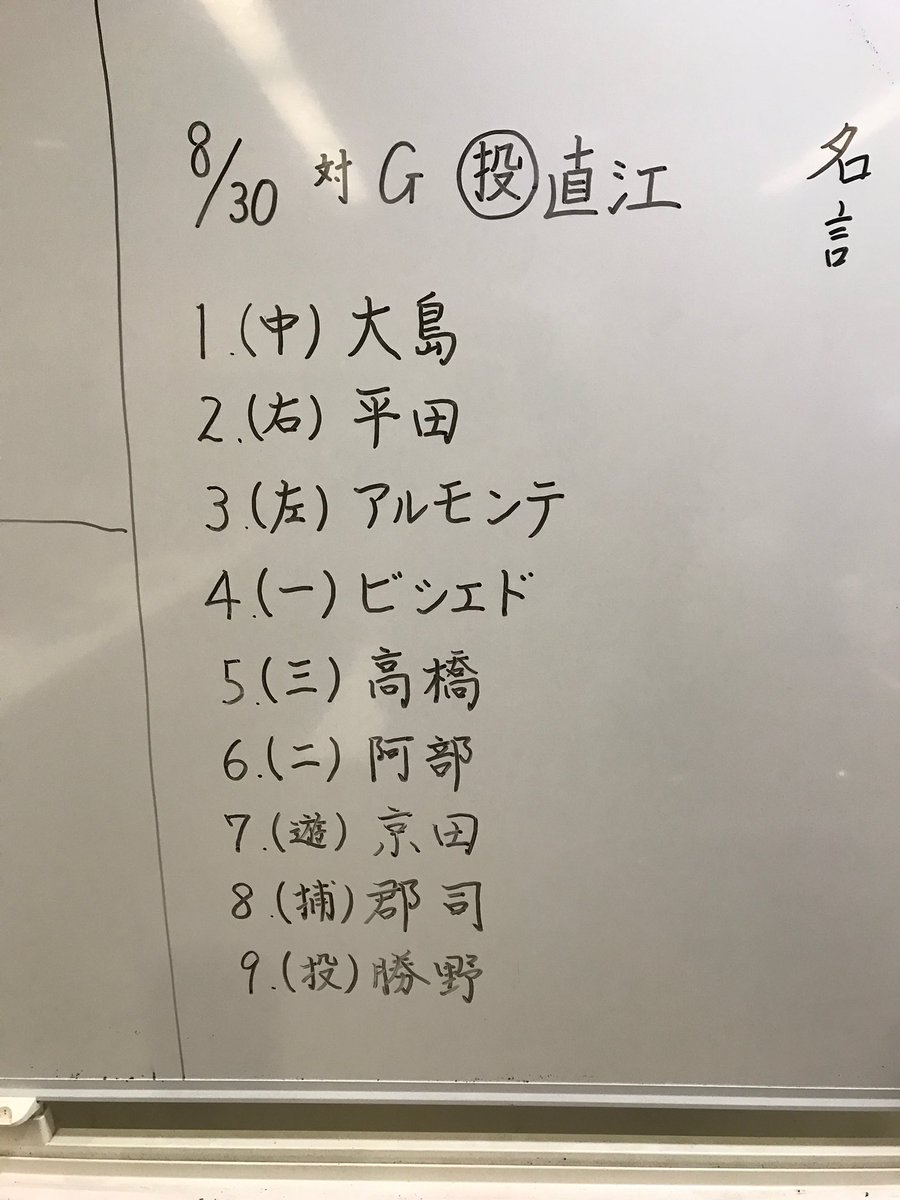 8/30 対 G 投 直江
1.(中) 大島
2.(右) 平田
3.(左) アルモンテ
4.(一) ビシエド
5.(三) 高橋
6.(二) 阿部
7.(遊) 京田
8.(捕) 郡司
9.(投) 勝野
名言